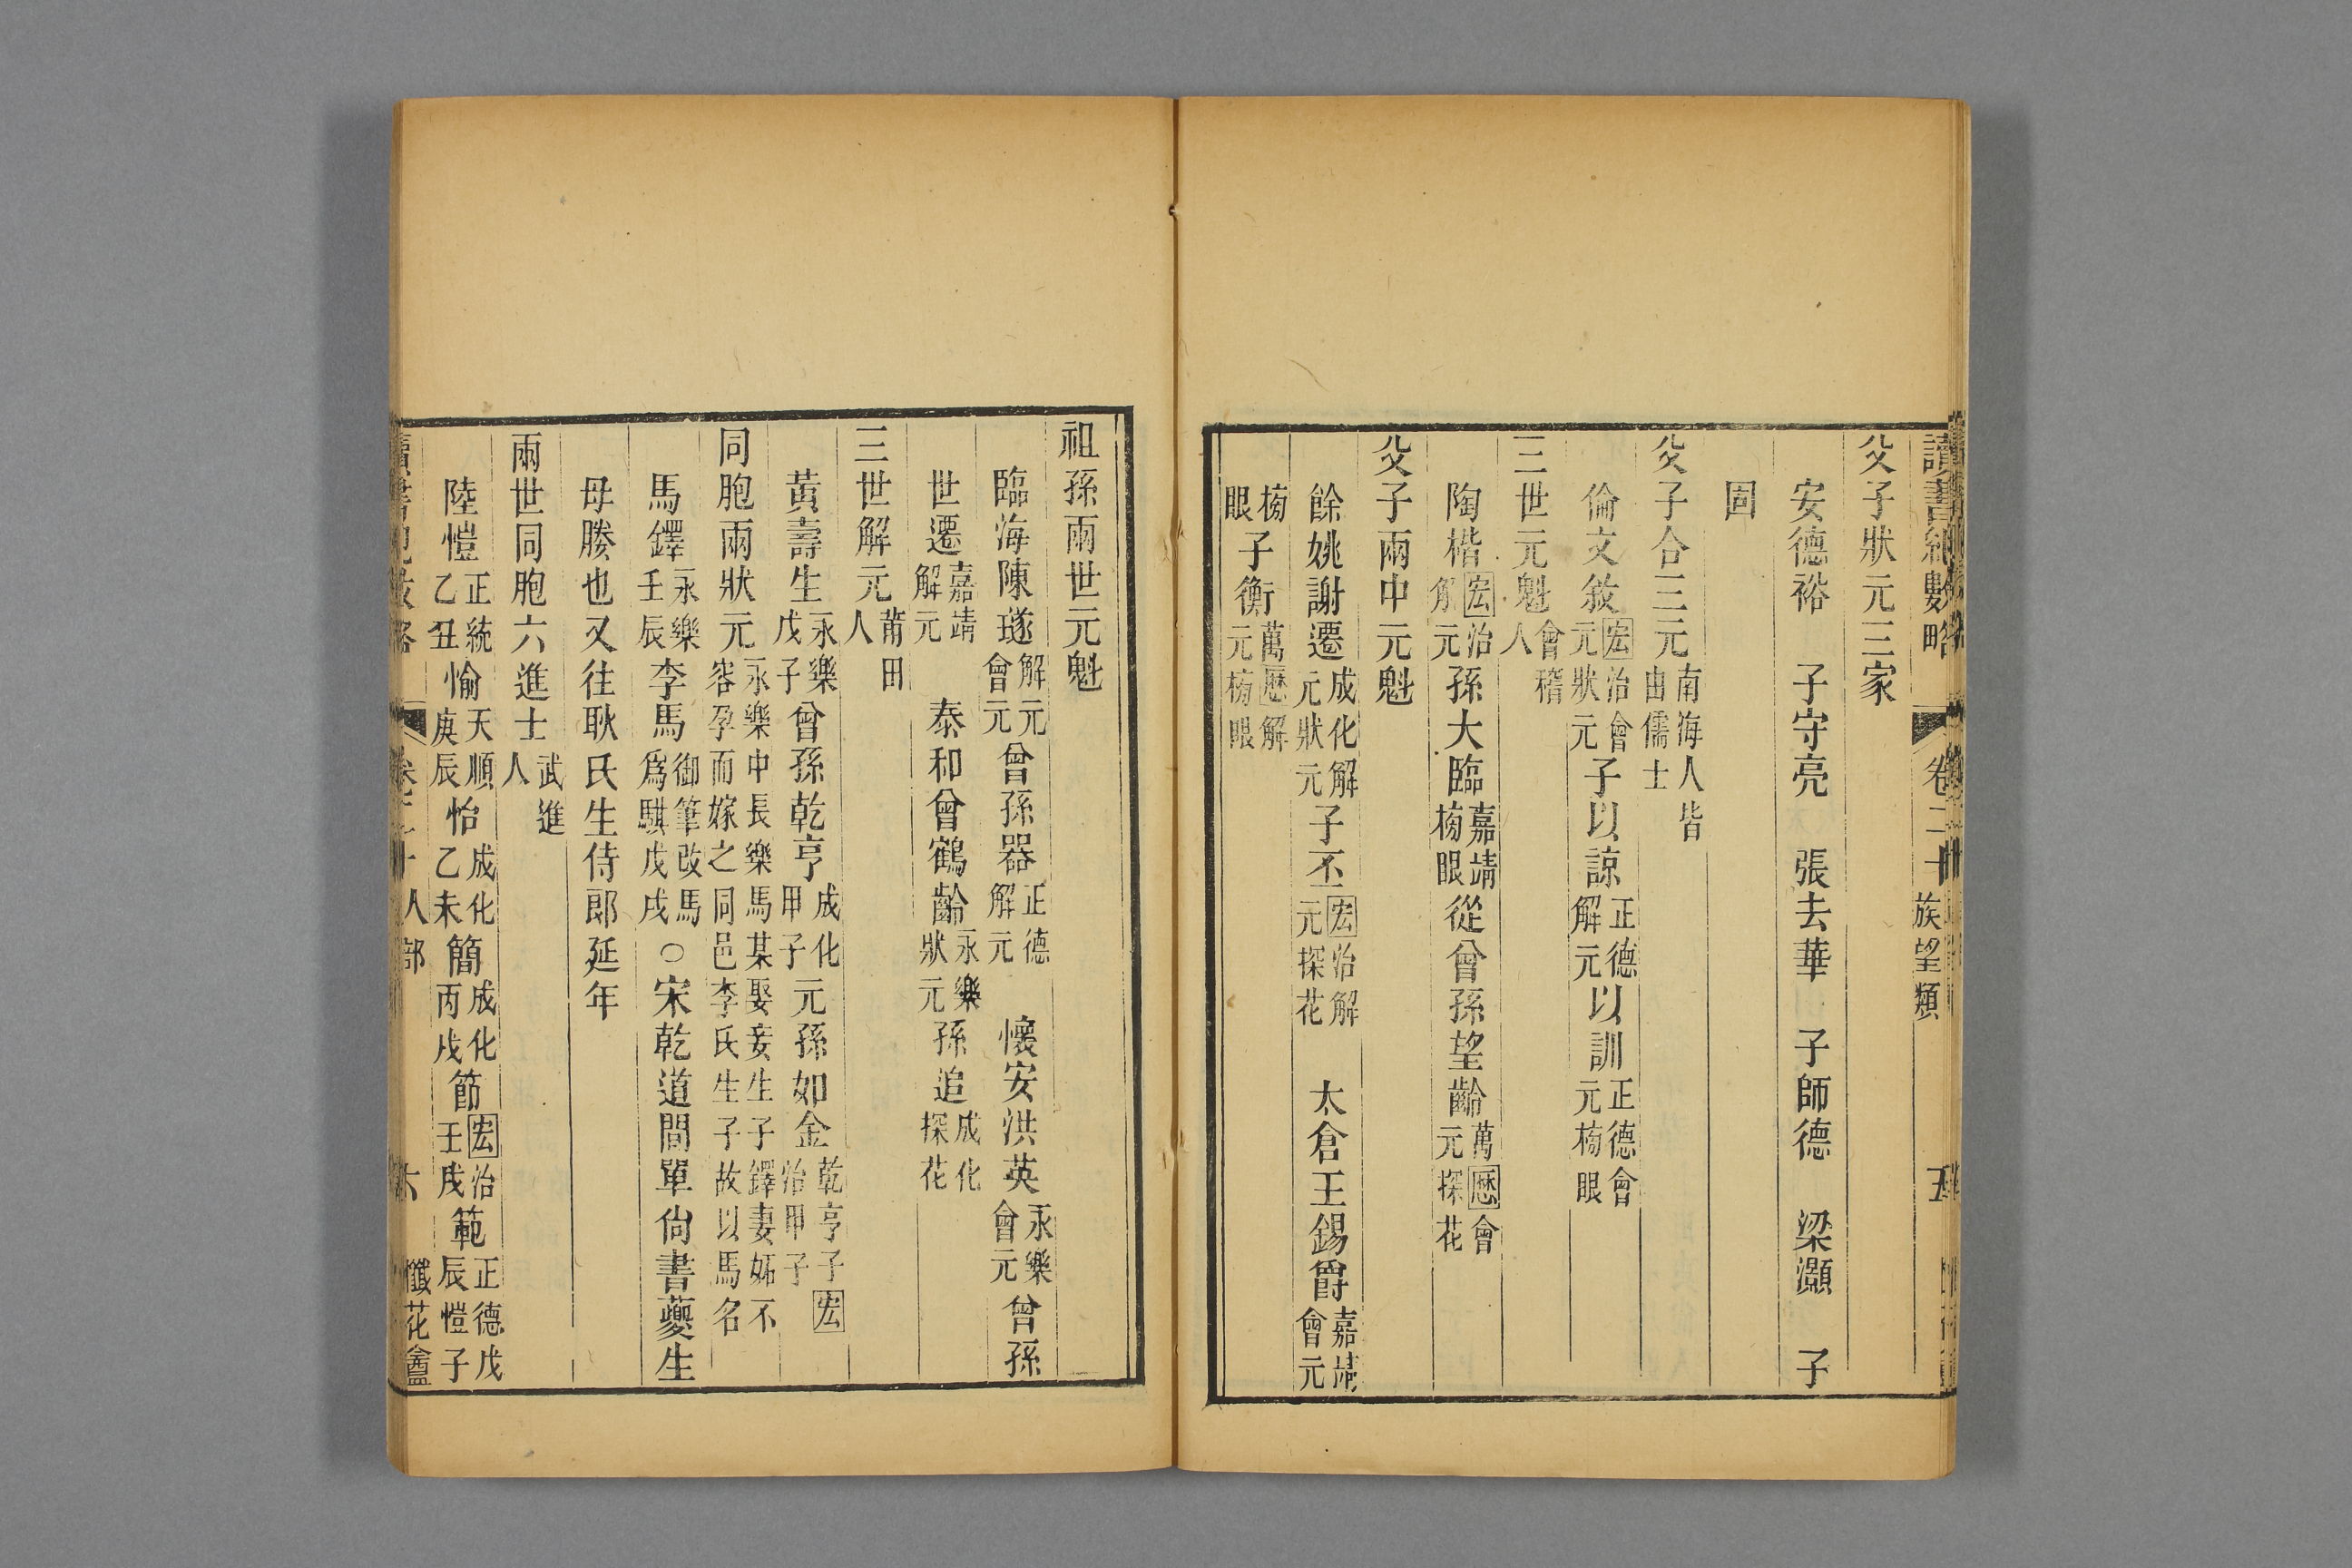 讀書紀數略 卷二十 族望類 五
父子狀元三家
安德裕 子守亮 張去華 子師德 梁灝 子
固
父子合三元南海人皆由儒士
倫文敘宏治會元狀元子以諒正德解元以訓正德會元榜眼
三世元魁會稽人
陶楷宏治解元孫大臨嘉靖榜眼從曾孫望齡萬歷會元探花
父子兩中元魁
餘姚謝遷成化解元狀元子丕宏治解元探花 太倉王錫爵嘉靖會元
榜眼子衡萬歷解元榜眼
祖孫兩世元魁
臨海陳璲解元會元曾孫器正德解元 懷安洪英永樂會元曾孫
世遷嘉靖解元 泰和曾鶴齡永樂狀元孫追成化探花
三世解元莆田人
黃壽生永樂戊子曾孫乾亨成化甲子元孫如金乾亨子宏治甲子
同胞兩狀元永樂中長樂馬某娶妾生子鐸妻妬不容孕而嫁之同邑李氏生子故以馬名
馬鐸永樂壬辰李馬御筆改馬爲騏戊戌○宋乾道間單尚書夔生
母媵也又往耿氏生侍郎延年
兩世同胞六進士武進人
陸愷正統乙丑愉天順庚辰怡成化乙未簡成化丙戌節宏治壬戌範正德戊辰愷子
卷二十 人部 六 懺花盦